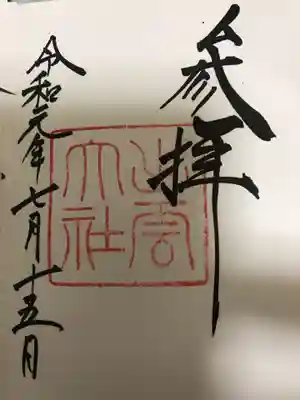 参拝
出雲
大社
令和元年七月十五日